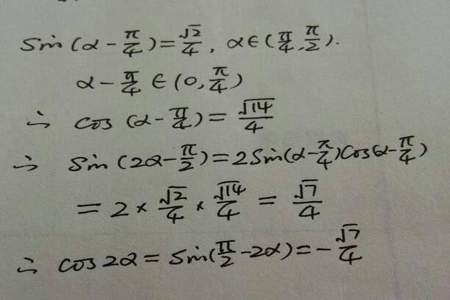 Sin(α-π/4)=√2/4, α∈(π/4,π/2).
α-π/4∈(0,π/4)
∴ cos(α-π/4)=√14/4
∴ Sin(2α-π/2)=2Sin(α-π/4)cos(α-π/4)
=2×√2/4×√14/4=√7/4
∴ cos2α=Sin(π/2-2α)=-√7/4